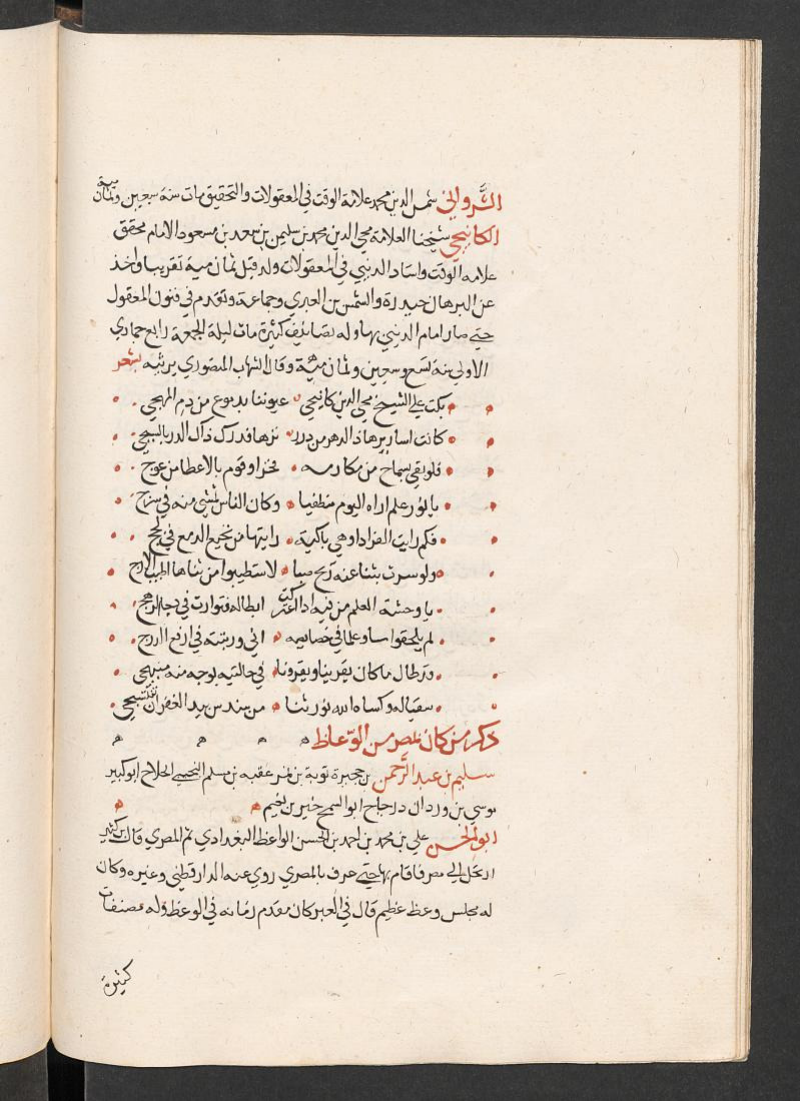 الشرواني شمس الدين محمد علامة الوقت في المعقولات والتحقيق مات سنة سبعين وثمان مية
الكافيجي شيخنا العلامة محي الدين محمد بن سليمن بن سعد بن مسعود الامام محقق
علامه الوقت واستاد الدنيي في المعقولات ولد قبل ثمان مية تقريبا واخذ
عن البرهان حيدرة والشمس بن العبري وجماعة وتقدم في فنون المعقول
حتي صار امام الدنيي بها وله تصانيف كثيرة مات ليلة الجمعة رابع جمادي
الاولي سنة تسع وسبعين وثمان مية وقال الشهاب المنصوري يرثيه شعر
بكت علي الشيخ محي الدين كافيجي عيوننا بدموع من دم المهجي
كانت اسارير هذا الدهر من درر تزها فدرك ذاك الدر بالسبجي
فلو بقي سماح من مكارمه فخرا وقوم بالاعطا من عوج
يا نور علم اراه اليوم منطفيا وكان الناس تمشي منه في سرج
فكم رايت الفراد اوهي باكية رايتها من نجيع الدمع في لجج
ولو سرت بثنا عنه ريح صبا لاستطيبوا من ثناها الطيب الارج
يا وحشة العلم من فيه اذا اعتركت ابطاله فتوارت في دجا الرهج
لم يلحقوا شاو علما في خصايصه اني ورتبته في ارفع الدرج
قد طال ما كان يقرينا ويقرونا في حالتيه بوجه منه مبتهجي
سقيا له وكساه الله نور ثنا من سندس بيد الغفران منتسجي
ذكر من كان بمصر من الوعاظ
سليم بن عبد الرحمن بن حجيرة توبة بن نمر عقبه بن مسلم التجيبي الجلاح ابو كبير
موسي بن وردان دراج ابو السمح خير بن نعيم
ابو الحسن علي بن محمد بن احمد بن الحسن الواعظ البغدادي ثم المصري قال بن كثير
ارتحل الي مصر فاقام بها حتي عرف بالمصري روي عنه الدارقطني وغيره وكان
له مجلس وعظ عظيم قال في العبر كان مقدم زمانه في الوعظ وله مصنفات
كثيرة